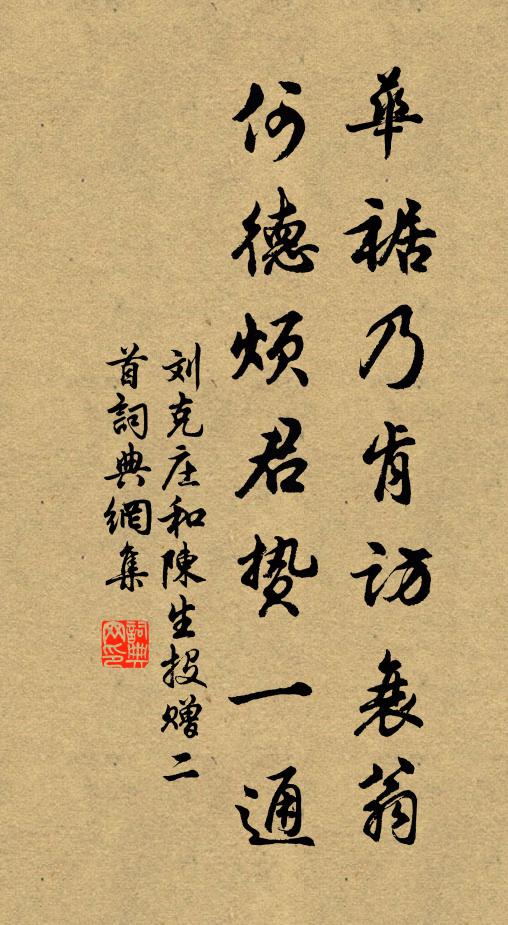 華裾乃肯訪衰翁
何德煩君贽一通
刘克庄和陳生投赠二
首詞典網集
詞典
网印